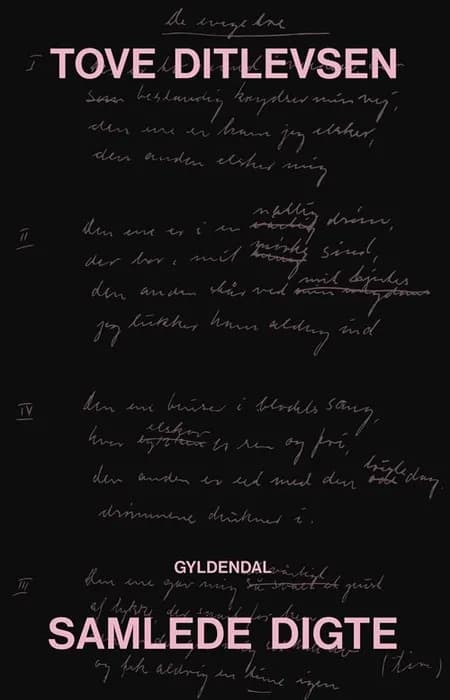 De evige tre
I
TOVE DITLEVSEN
som bestandig krydser min vej,
den ene er ham jeg elsker,
den anden elsker mig
II
Den ene er i en natlig drøm,
der bor i mit mørke sind,
den anden står ved mit hjertes
jeg lukker ham aldrig ind
IV
Den ene bruser i blodets sang,
hvor elskov er ren og fri,
den anden er ét med den dag
drømmene drukner i.
GYLDENDAL
III
Den ene gav mig et pust
SAMLEDE DIGTE
og fik aldrig en time igen